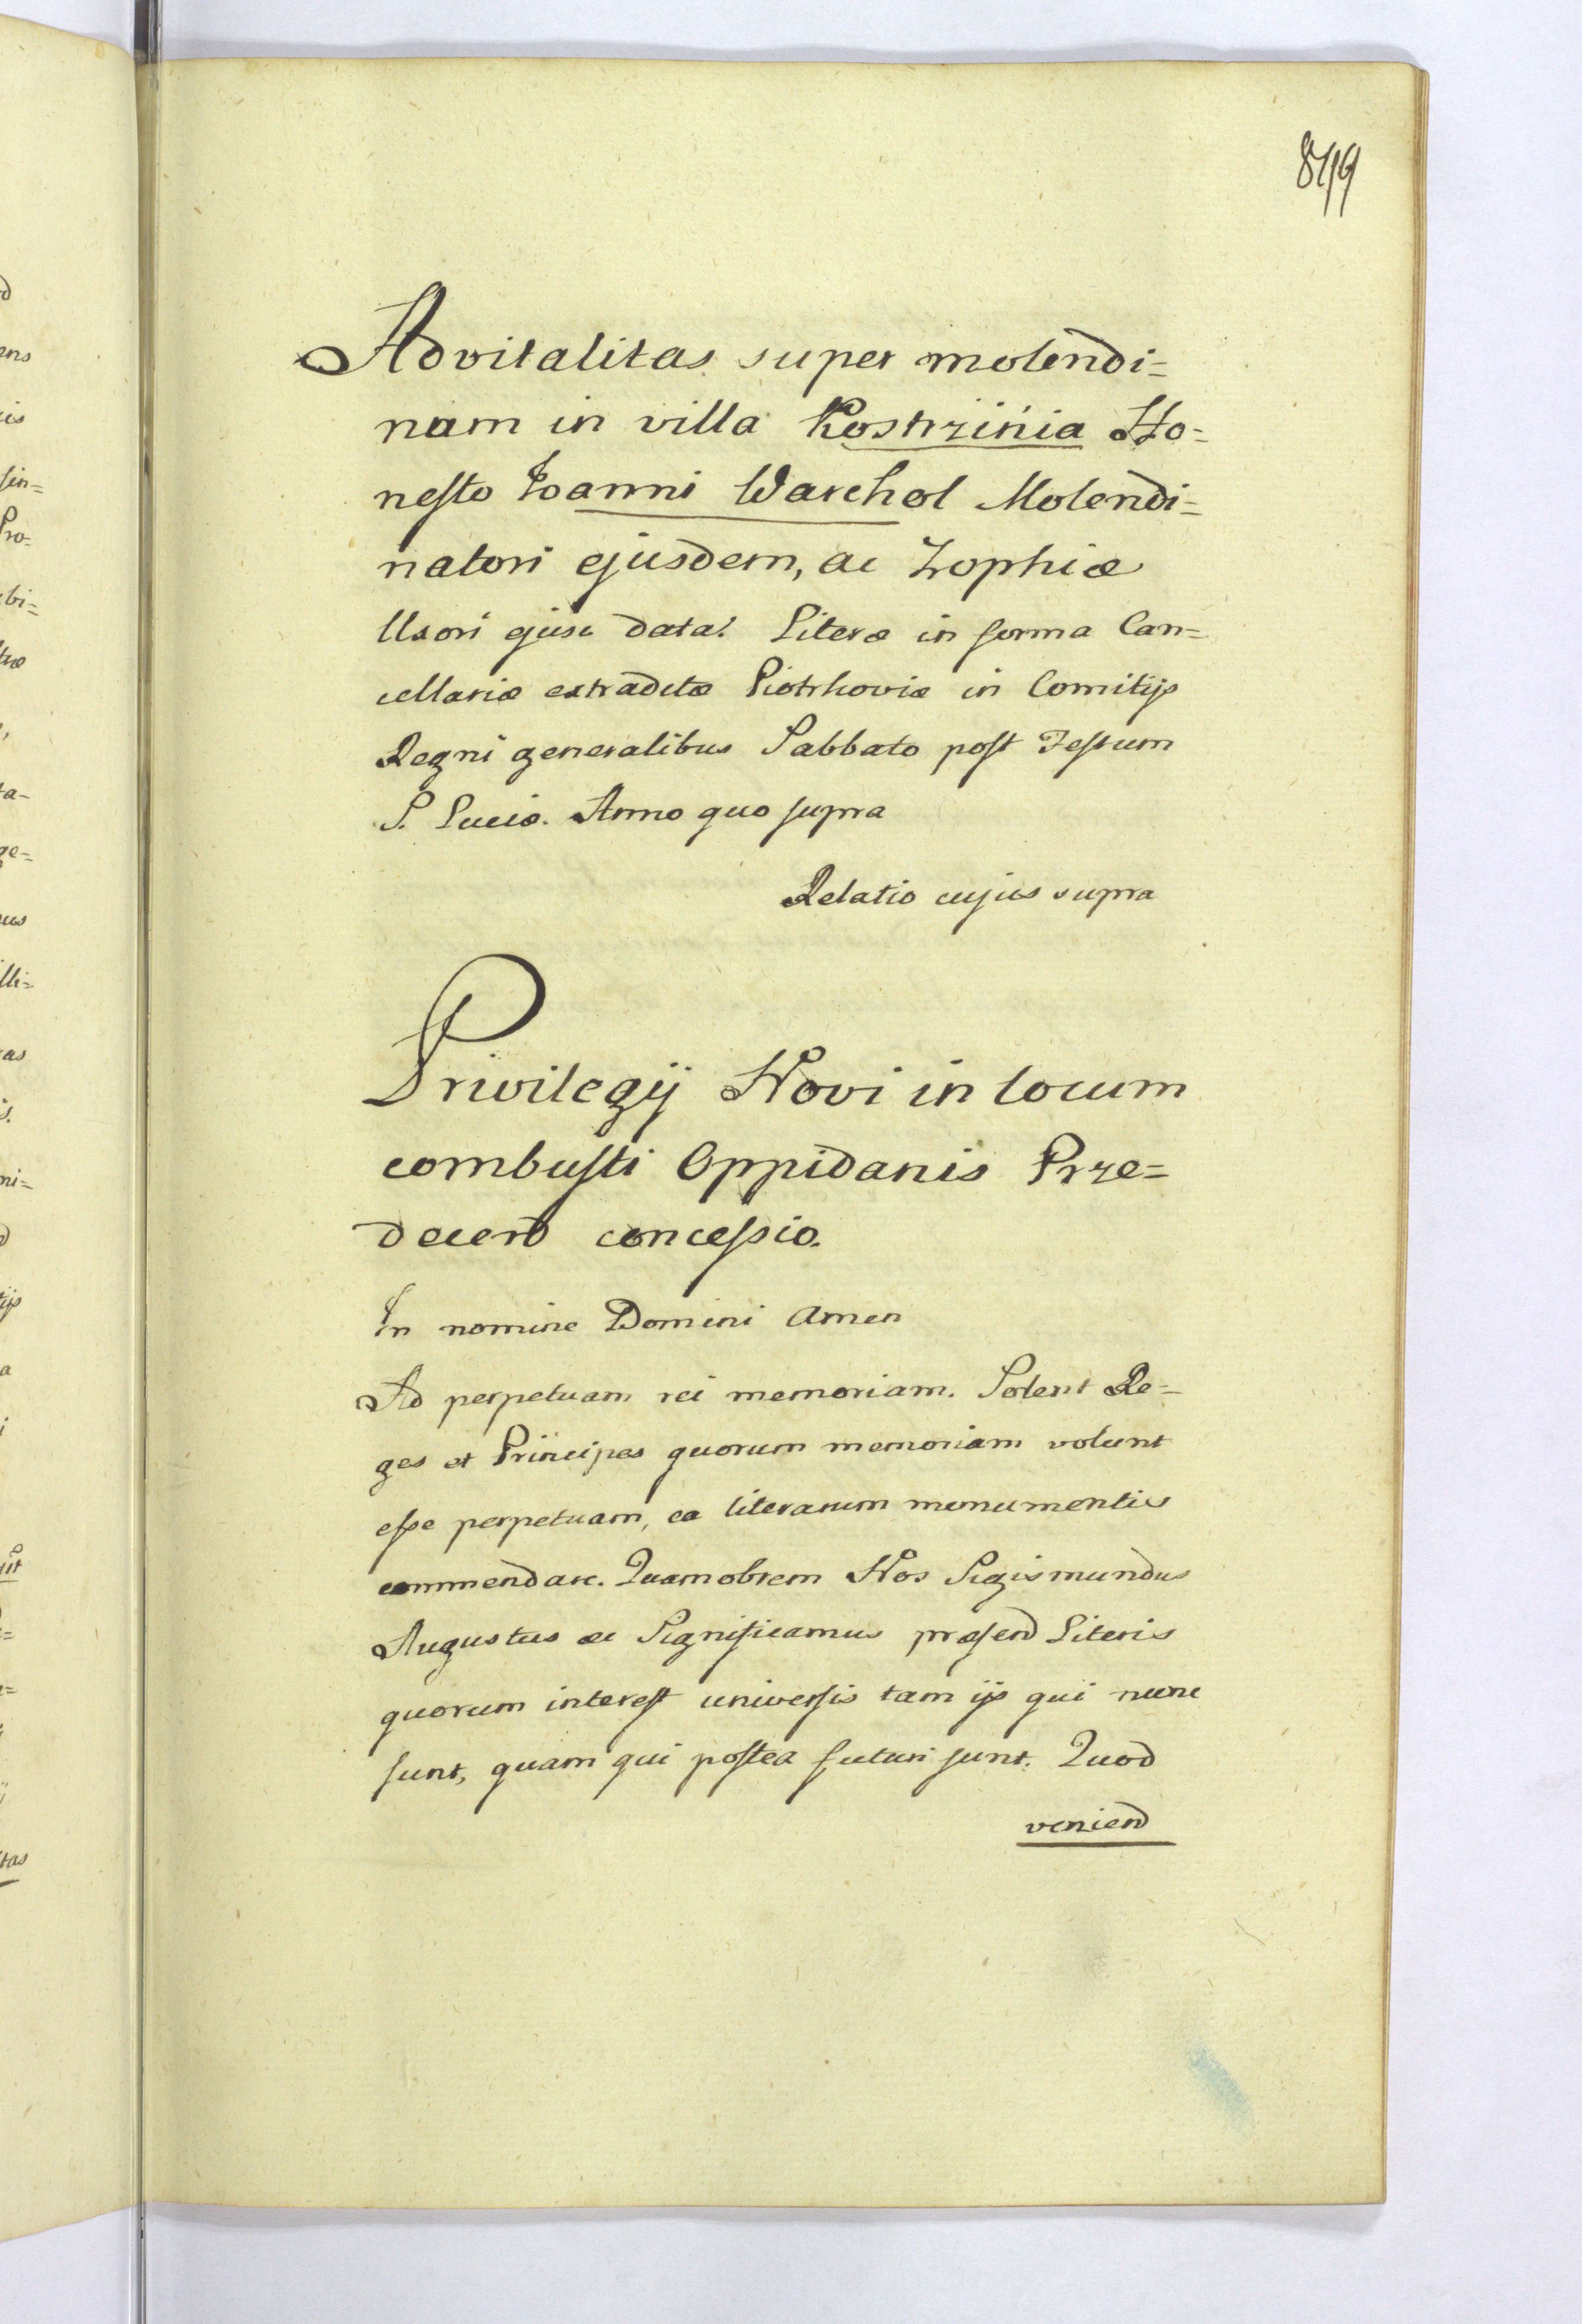 Advitalitas super molendi=
nam in villa Kostrzinia Ho=
nesto Joanni Warchol Molendi=
natori ejusdem, ac Zophiæ
Uxori ejus data. Literæ in forma Can=
cellariæ extraditæ Piotrkoviæ in Comitijs
Regni generalibus Sabbato post Festum
S. Luciæ. Anno quo supra
Relatio cujus supra
Privilegij Novi in locum
combusti Oppidanis Prze=
decend concessio.
In nomine Domini Amen
Ad perpetuam rei memoriam. Solent Re=
ges et Principes quorum memoriam volunt
esse perpetuam, ea literarum monumentis
commendare. Quamobrem Nos Sigismundus
Augustus ac Significamus præsend Literis
quorum interest universis tam ijs qui nunc
sunt, quam qui postea futuri sunt. Quod
veniend